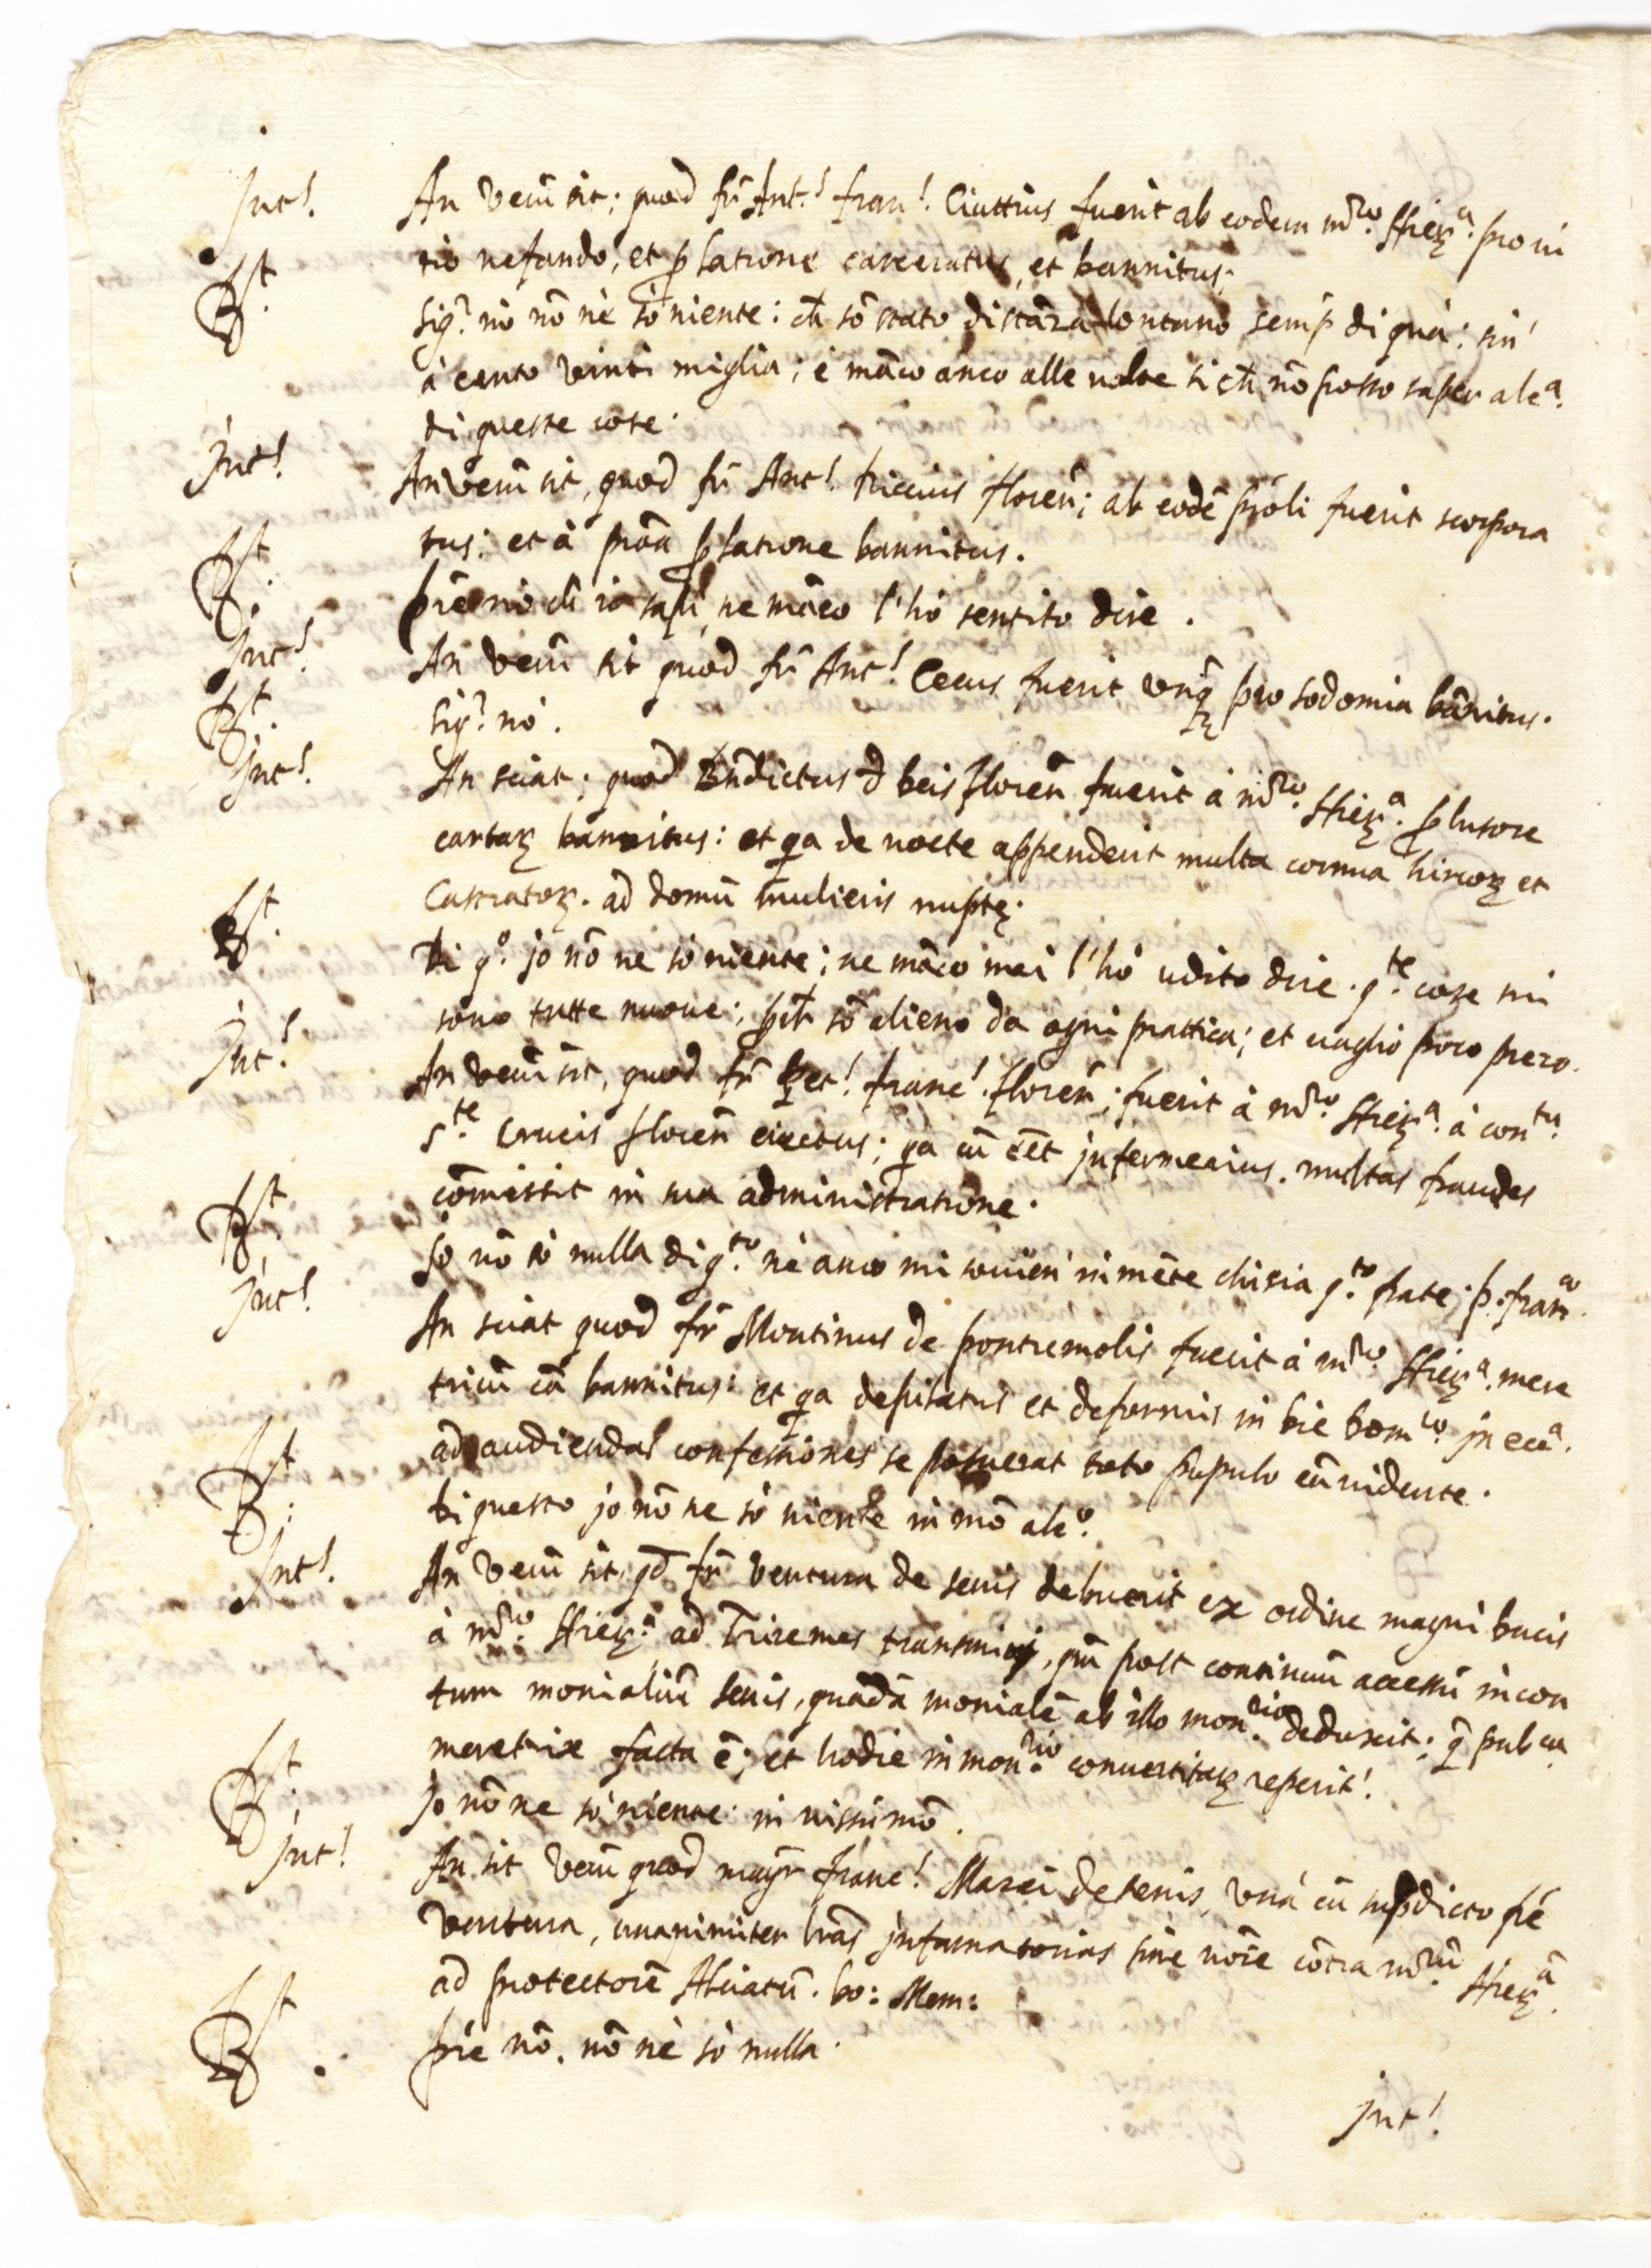 Int.^s An verũ sit; quod fr̃ Ant.^s fran.^s Ciuttius fuerit ab eodem m̃ro. Hier.^a pro ui
tio nefando, et p̱ latrone carceratus, et bannitus.
R.^t Sig.^r nò nõ nè sò niente: ch̃ sõ stato distãza lontano semp̱ di quà: sin'
à cento vinti miglia; è mãco anco alle uolte sich̃ nõ posso saper alc.^a
di queste cose.
Int.^s An verũ sit, quod fr̃ Ant.^s Riccius floreñ; ab eodẽ p̱oli fuerit scorpora
tus: et à proã p̱ latrone bannitus.
R.^t pr̃e nò ch̃ io sapi, ne mãco l'hò sentito dire.
Int.^s An verũ sit quod fr̃ Ant.^s Cecus fuerit unq̃ pro sodomia bãnitus.
R.^t Sig.^r nò.
Int.^s An sciat; quod Bñdictus d beis floreñ fuerit à m̃ro. Hier.^a p̱ lusore
cartaꝝ bannitus: et qa de nocte appenderit multa cornua hircoꝝ et
Castratoꝝ. ad domũ mulieris nuptę.
R.^t Di q.^o jo nõ ne sò niente; ne mãco mai l'hò udito dire. q.^te cose mi
sono tutte nuoue; p̱ch̃ sõ alieno da ogni prattica; et uaglio poco prezo.
Int.^s An verũ sit, quod fr̃ franc.^s floreñ; fuerit à m̃ro. Hier.^a à con.^tu
S.^te Crucis floreñ eiectus; qa cũ eẽt jnfermerius. multas fraudes
cõmissit in sua administratione.
R.^t Jo nõ sò nulla di q.^to nè anco mi souien' in mẽte chi sia q.^to frate. p. fran.^co
Int.^s An sciat quod fr̃ Montinus de pontremolis fuerit à m̃ro. Hier.^a mere
tricũ cã bannitus: et qa depilatus et deformis in die dom.^co jn ecc.^a
ad audiendas confessiones se posuerat toto pupulo eũ uidente.
R.^t Di questo jo nõ ne sò niente in mõ alc.^o
Int.^s An verũ sit, qd̃ fr̃ Ventura de senis debuerit ex ordine magni Ducis
à m̃ro. Hier.^a ad Triremes transmitti, qm̃ post continuũ accessũ in con
tum monialiũ senis, quadã monialẽ ab illo mon.^rio deduxit; q̃ pub.^ca
meretrix facta ẽ; et hodie in mon.^rio conuertitaꝝ reperit.^r
R.^t Jo nõ ne sò niente in nissũ mõ.
Int.^s An sit verũ quod mag.^r franc.^s Marzi de senis, unà cũ sup̱dicto fr̃e
Ventura, unanimiter lrãs jnfamatorias sine nõie cõtra m̃rũ Hier.^ã
ad protectorẽ Alciatũ. bo: Mem:
R.^t pr̃e nõ. nõ nè sò nulla.
Int.^s